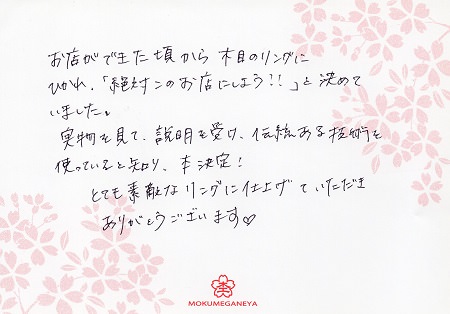 お店ができた頃から木目のリングに
ひかれ、「絶対このお店にしよう!!」と決めて
いました。
実物を見て、説明を受け、伝統ある技術を
使っていると知り、本決定!
とても素敵なリングに仕上げていただき
ありがとうございます♡
MOKUMEGANEYA